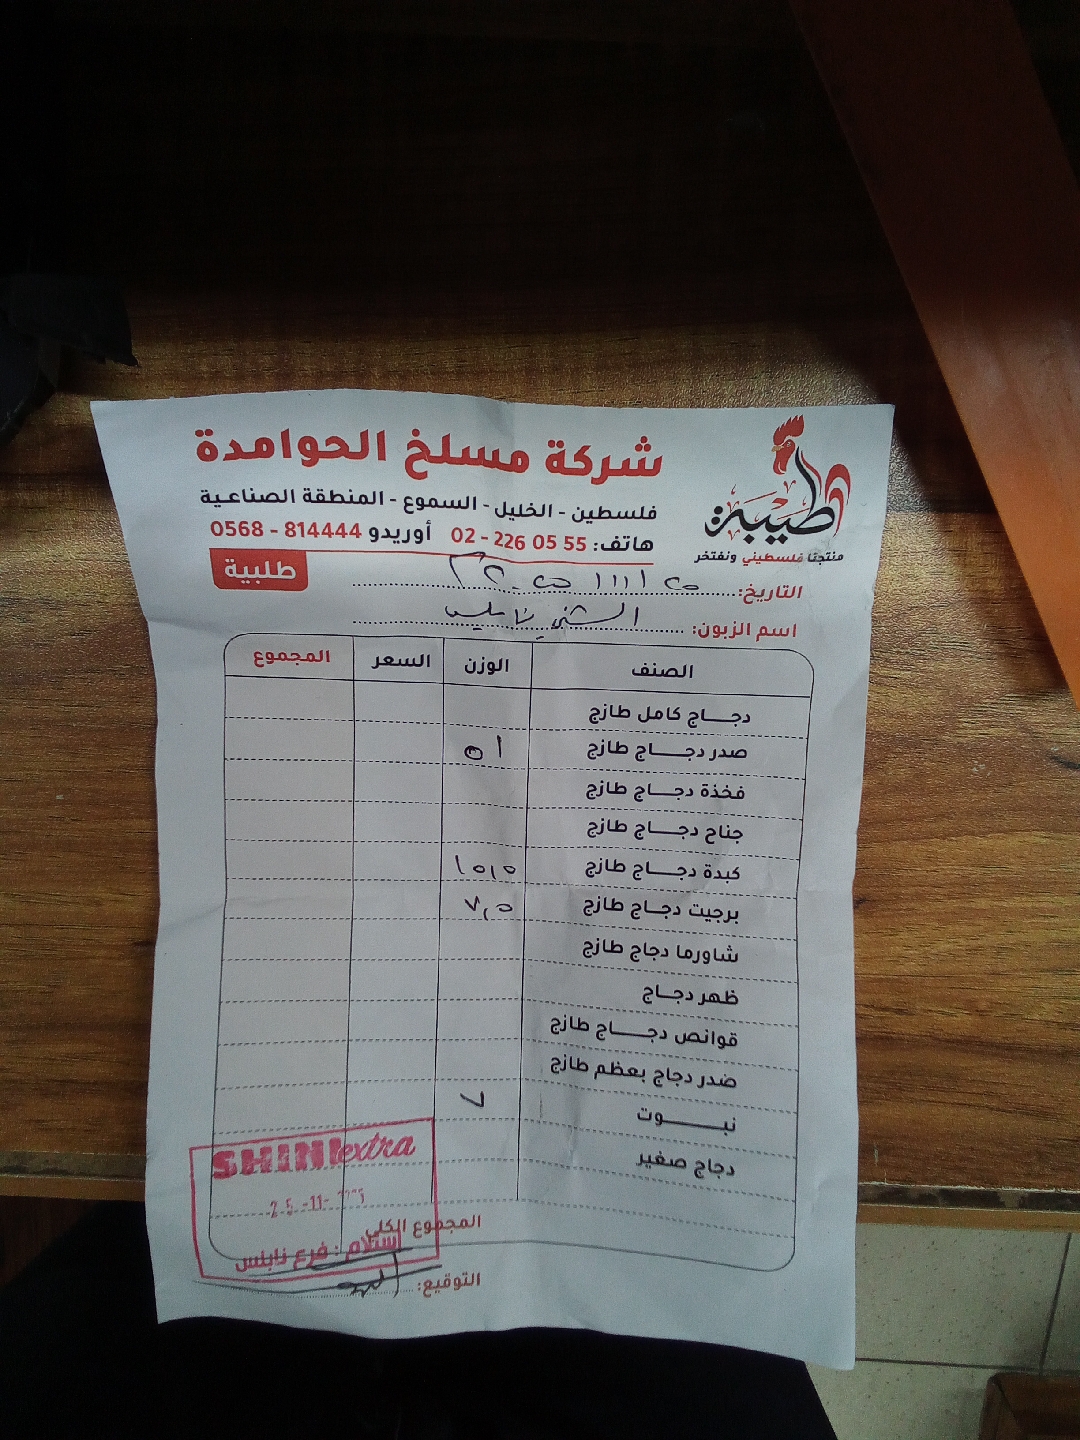 شركة مسلخ الحوامدة
فلسطين - الخليل - السموع - المنطقة الصناعية
هاتف: 55 05 226 - 02 أوريدو 814444 - 0568
طيبة
منتجنا فلسطيني ونفتخر
طلبية
التاريخ:
اسم الزبون: الشني نابلس
الصنف الوزن السعر المجموع
دجاج كامل طازج
صدر دجاج طازج ٥١
فخذة دجاج طازج
جناح دجاج طازج
كبدة دجاج طازج ١٥,٥
برجيت دجاج طازج ٧,٥
شاورما دجاج طازج
ظهر دجاج
قوانص دجاج طازج
صدر دجاج بعظم طازج
نبوت ٧
دجاج صغير
SHINI extra
25-11-
المجموع الكلي
إستلام : فرع نابلس
التوقيع: